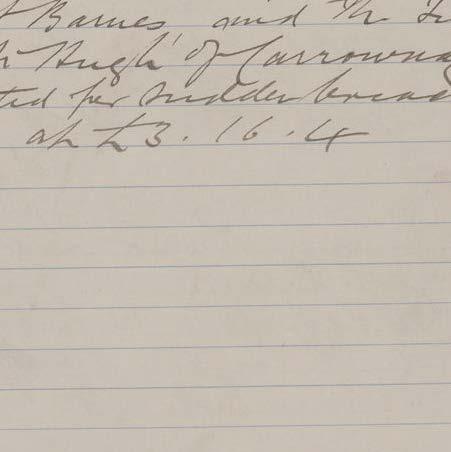 Barnes and Mr
Hugh of Carrownag
ted per sudden bread
at £3.16.4